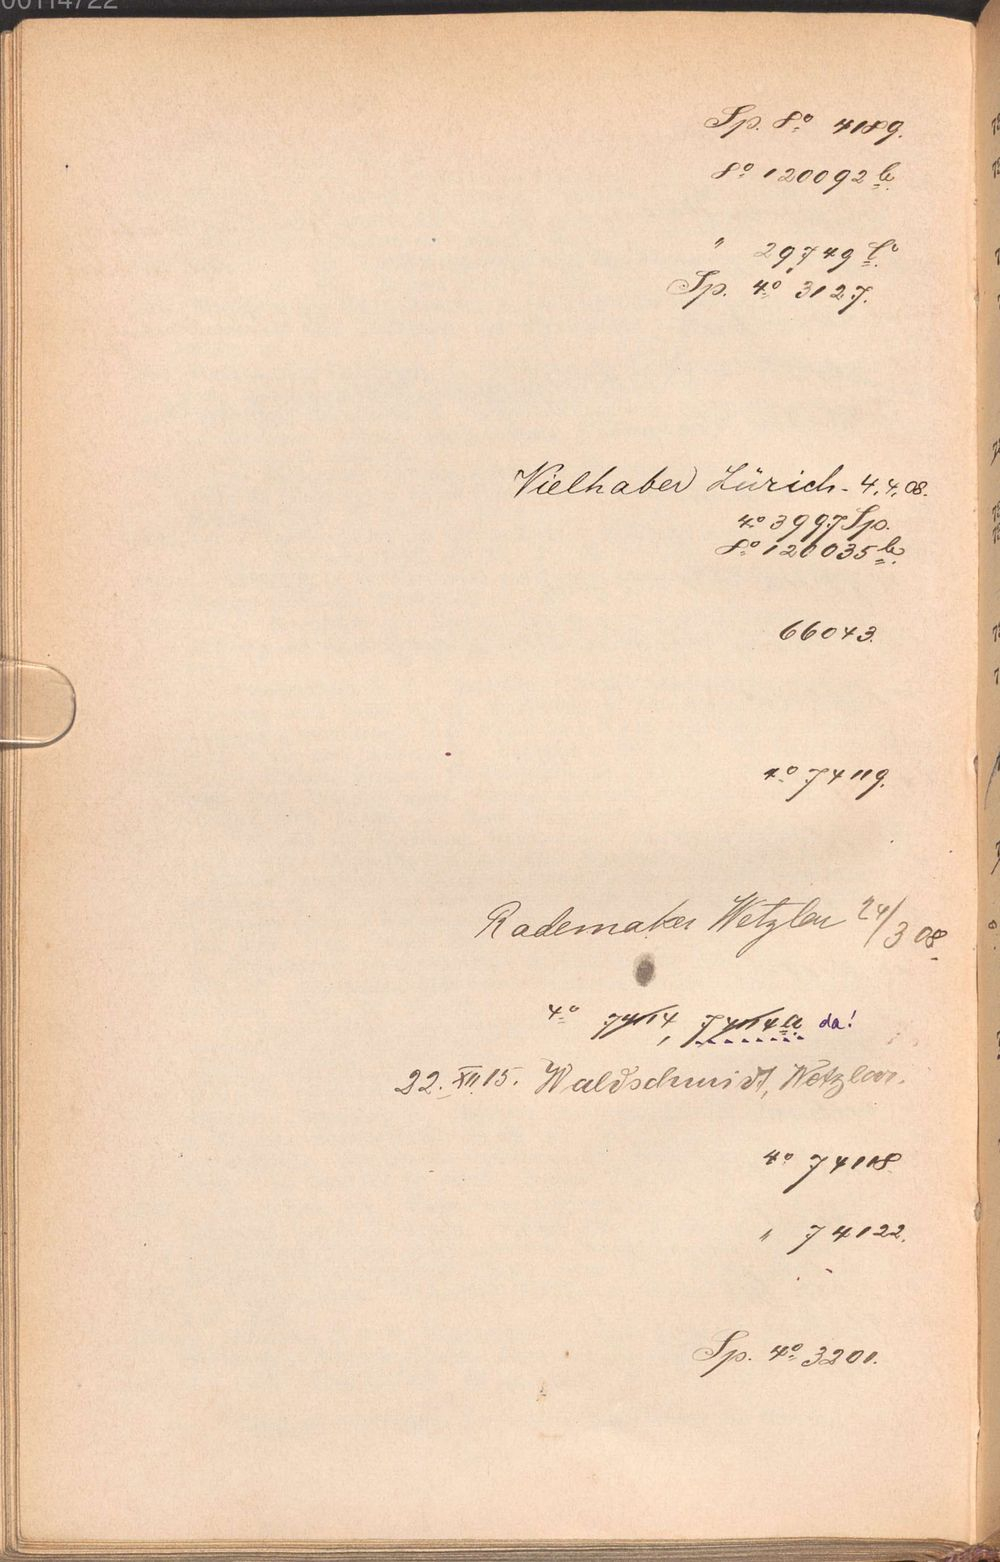 00114722
Sp. 8° 4189.
8° 120092 b.
" 29749 f.
Sp. 4° 3127.
Vielhaber Zürich - 4.4.08.
4° 3997 Sp.
8° 120035 b.
66043.
4° 74119.
Rademaker Wetzlar 24/3 08.
4° 74114, 74114a da!
22. XII. 15. Waldschmidt, Wetzlar.
4° 74118
" 74122.
Sp. 4° 3201.